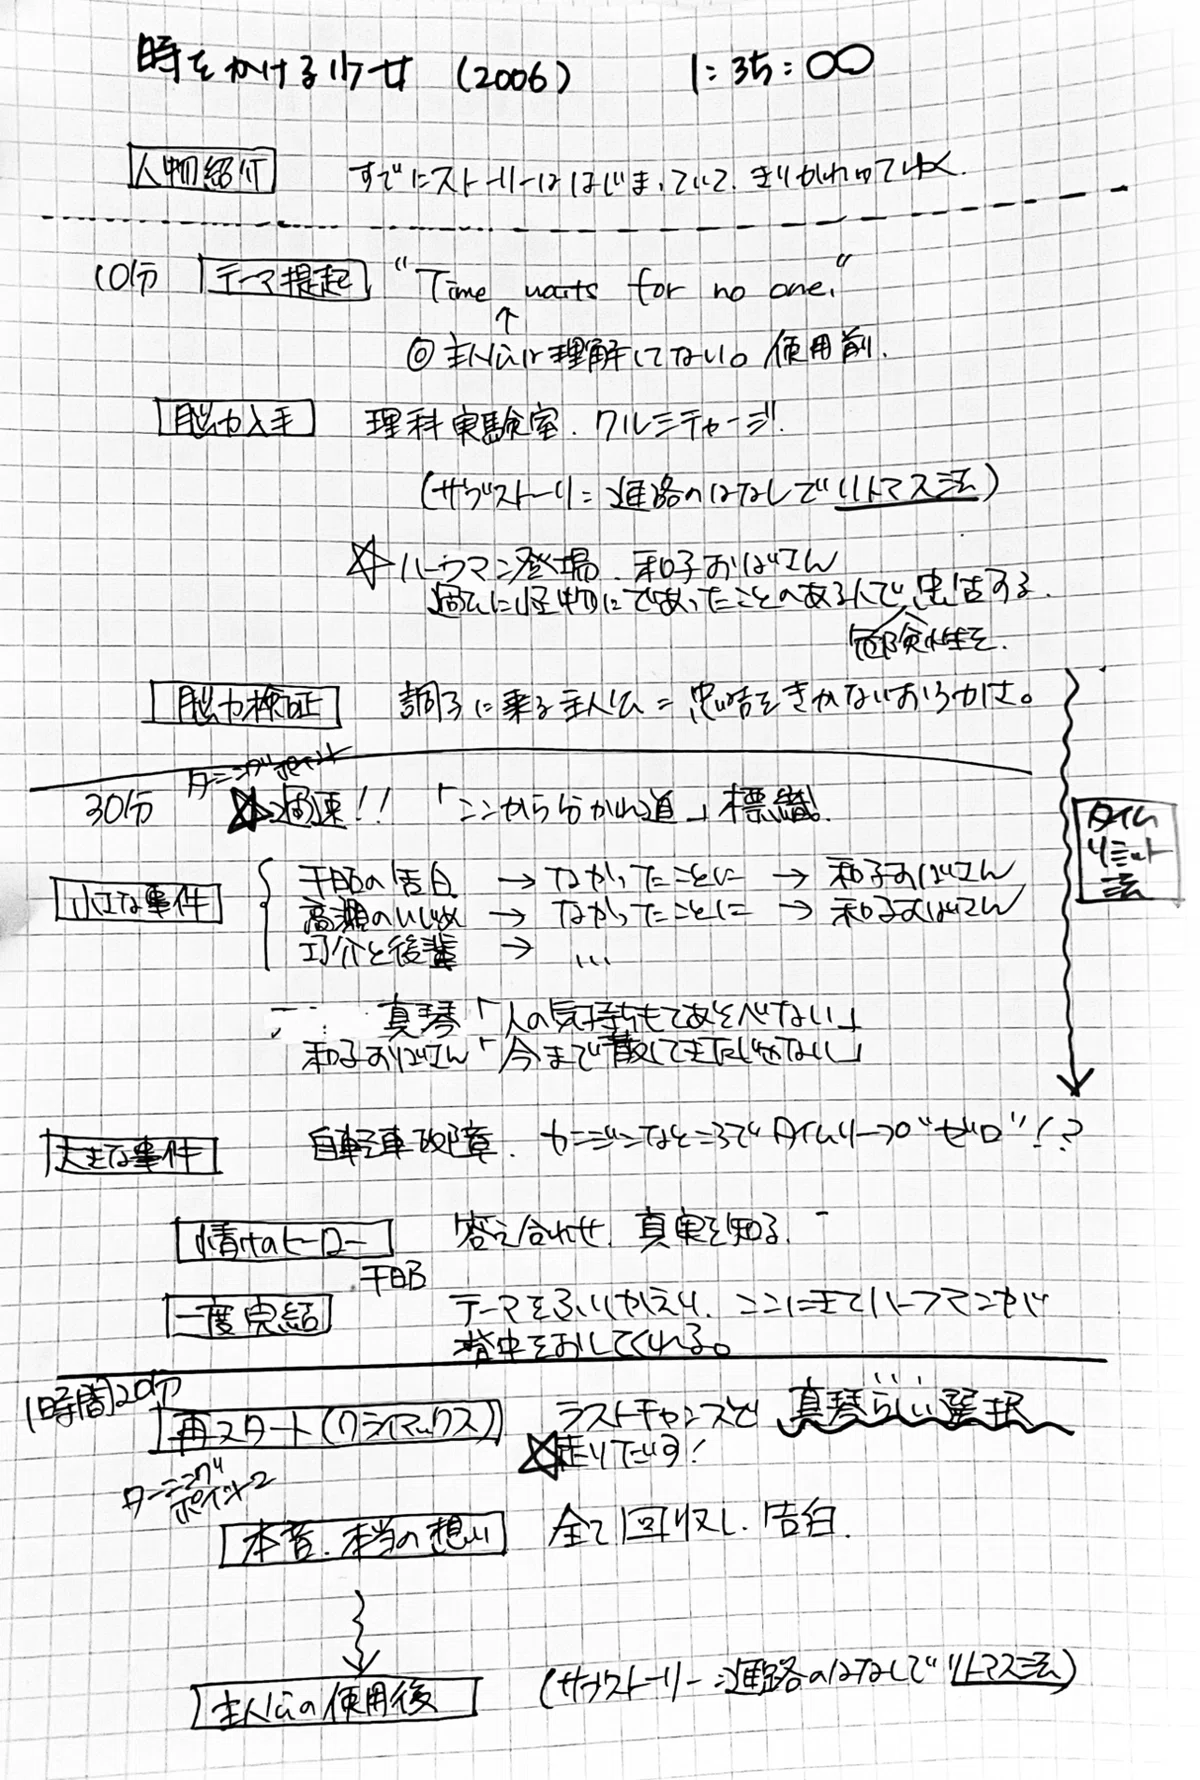 時をかける少女 (2006) 1:35:00
人物紹介 すでにストーリーははじまっていて、きりかわってゆく.
10分 テーマ提起 "Time waits for no one."
↑
◎主人公は理解してない。使用前.
能力入手 理科実験室. クルミチャージ.
(サブストーリー=進路のはなしでリトマス法)
☆ハーフマン登場. 和子おばさん
過去に怪物にであったことのある人で、忠告する.
危険性を.
能力検証 調子に乗る主人公=忠告をきかないおろかさ。
ターニングポイント
30分 ☆過速!! 「ここから分かれ道」標識!
タイムリミット法
小さな事件 千昭の告白 → なかったことに → 和子おばさん
高瀬のいじめ → なかったことに → 和子おばさん
功介と後輩 → …
真琴「人の気持ちもてあそべない」
和子おばさん「今まで散々してきたじゃない」
大きな事件 自転車故障. カンジンなところでタイムリープ"ゼロ"!?
情けのヒーロー 答え合わせ. 真実を知る.
千昭
一度完結 テーマをふりかえり. ここにきてハーフマンが
背中をおしてくれる。
1時間20分
再スタート(クライマックス) ラストチャンスと 真琴らしい選択
☆走りだす!
ターニングポイント2
本音.本当の想い 全て回収し. 告白.
主人公の使用後 (サブストーリー=進路のはなしでリトマス法)